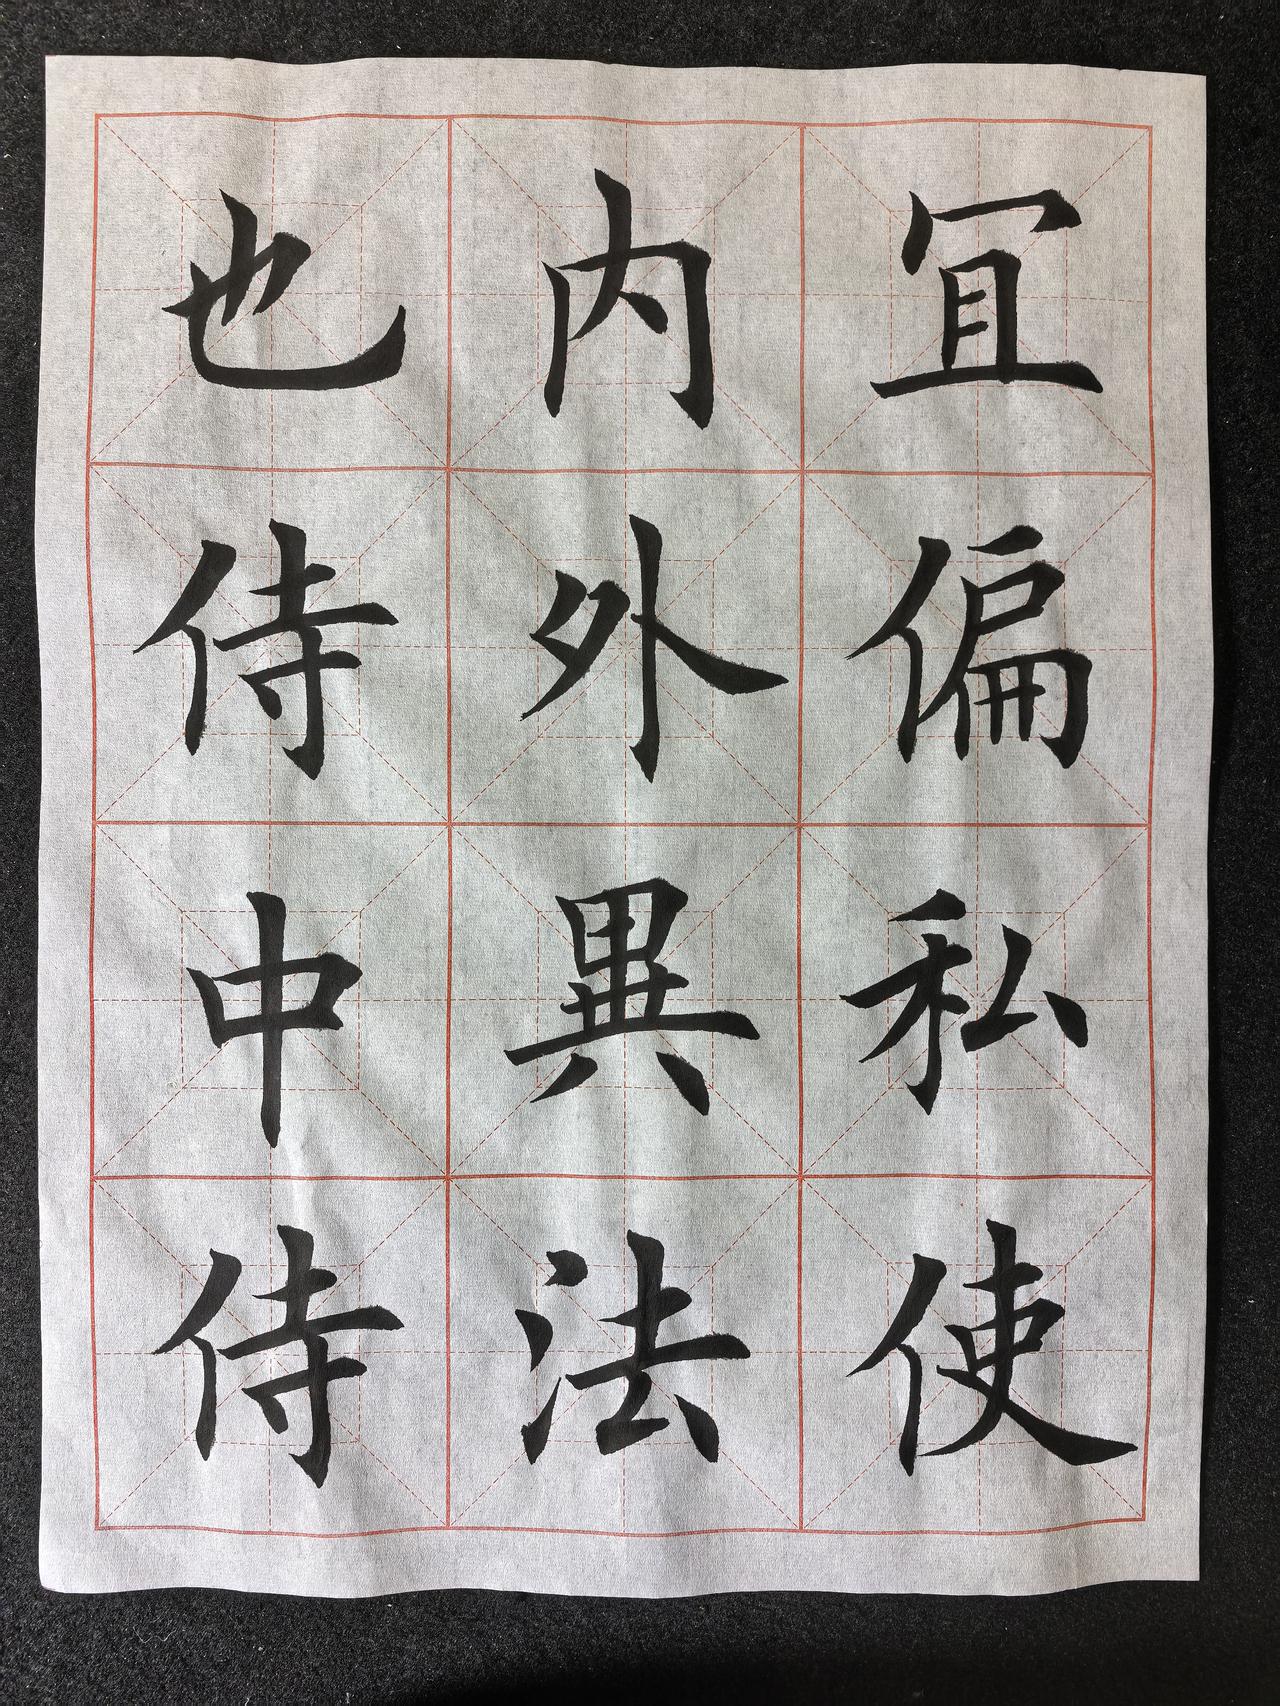 冝偏私使
内外異法
也侍中侍